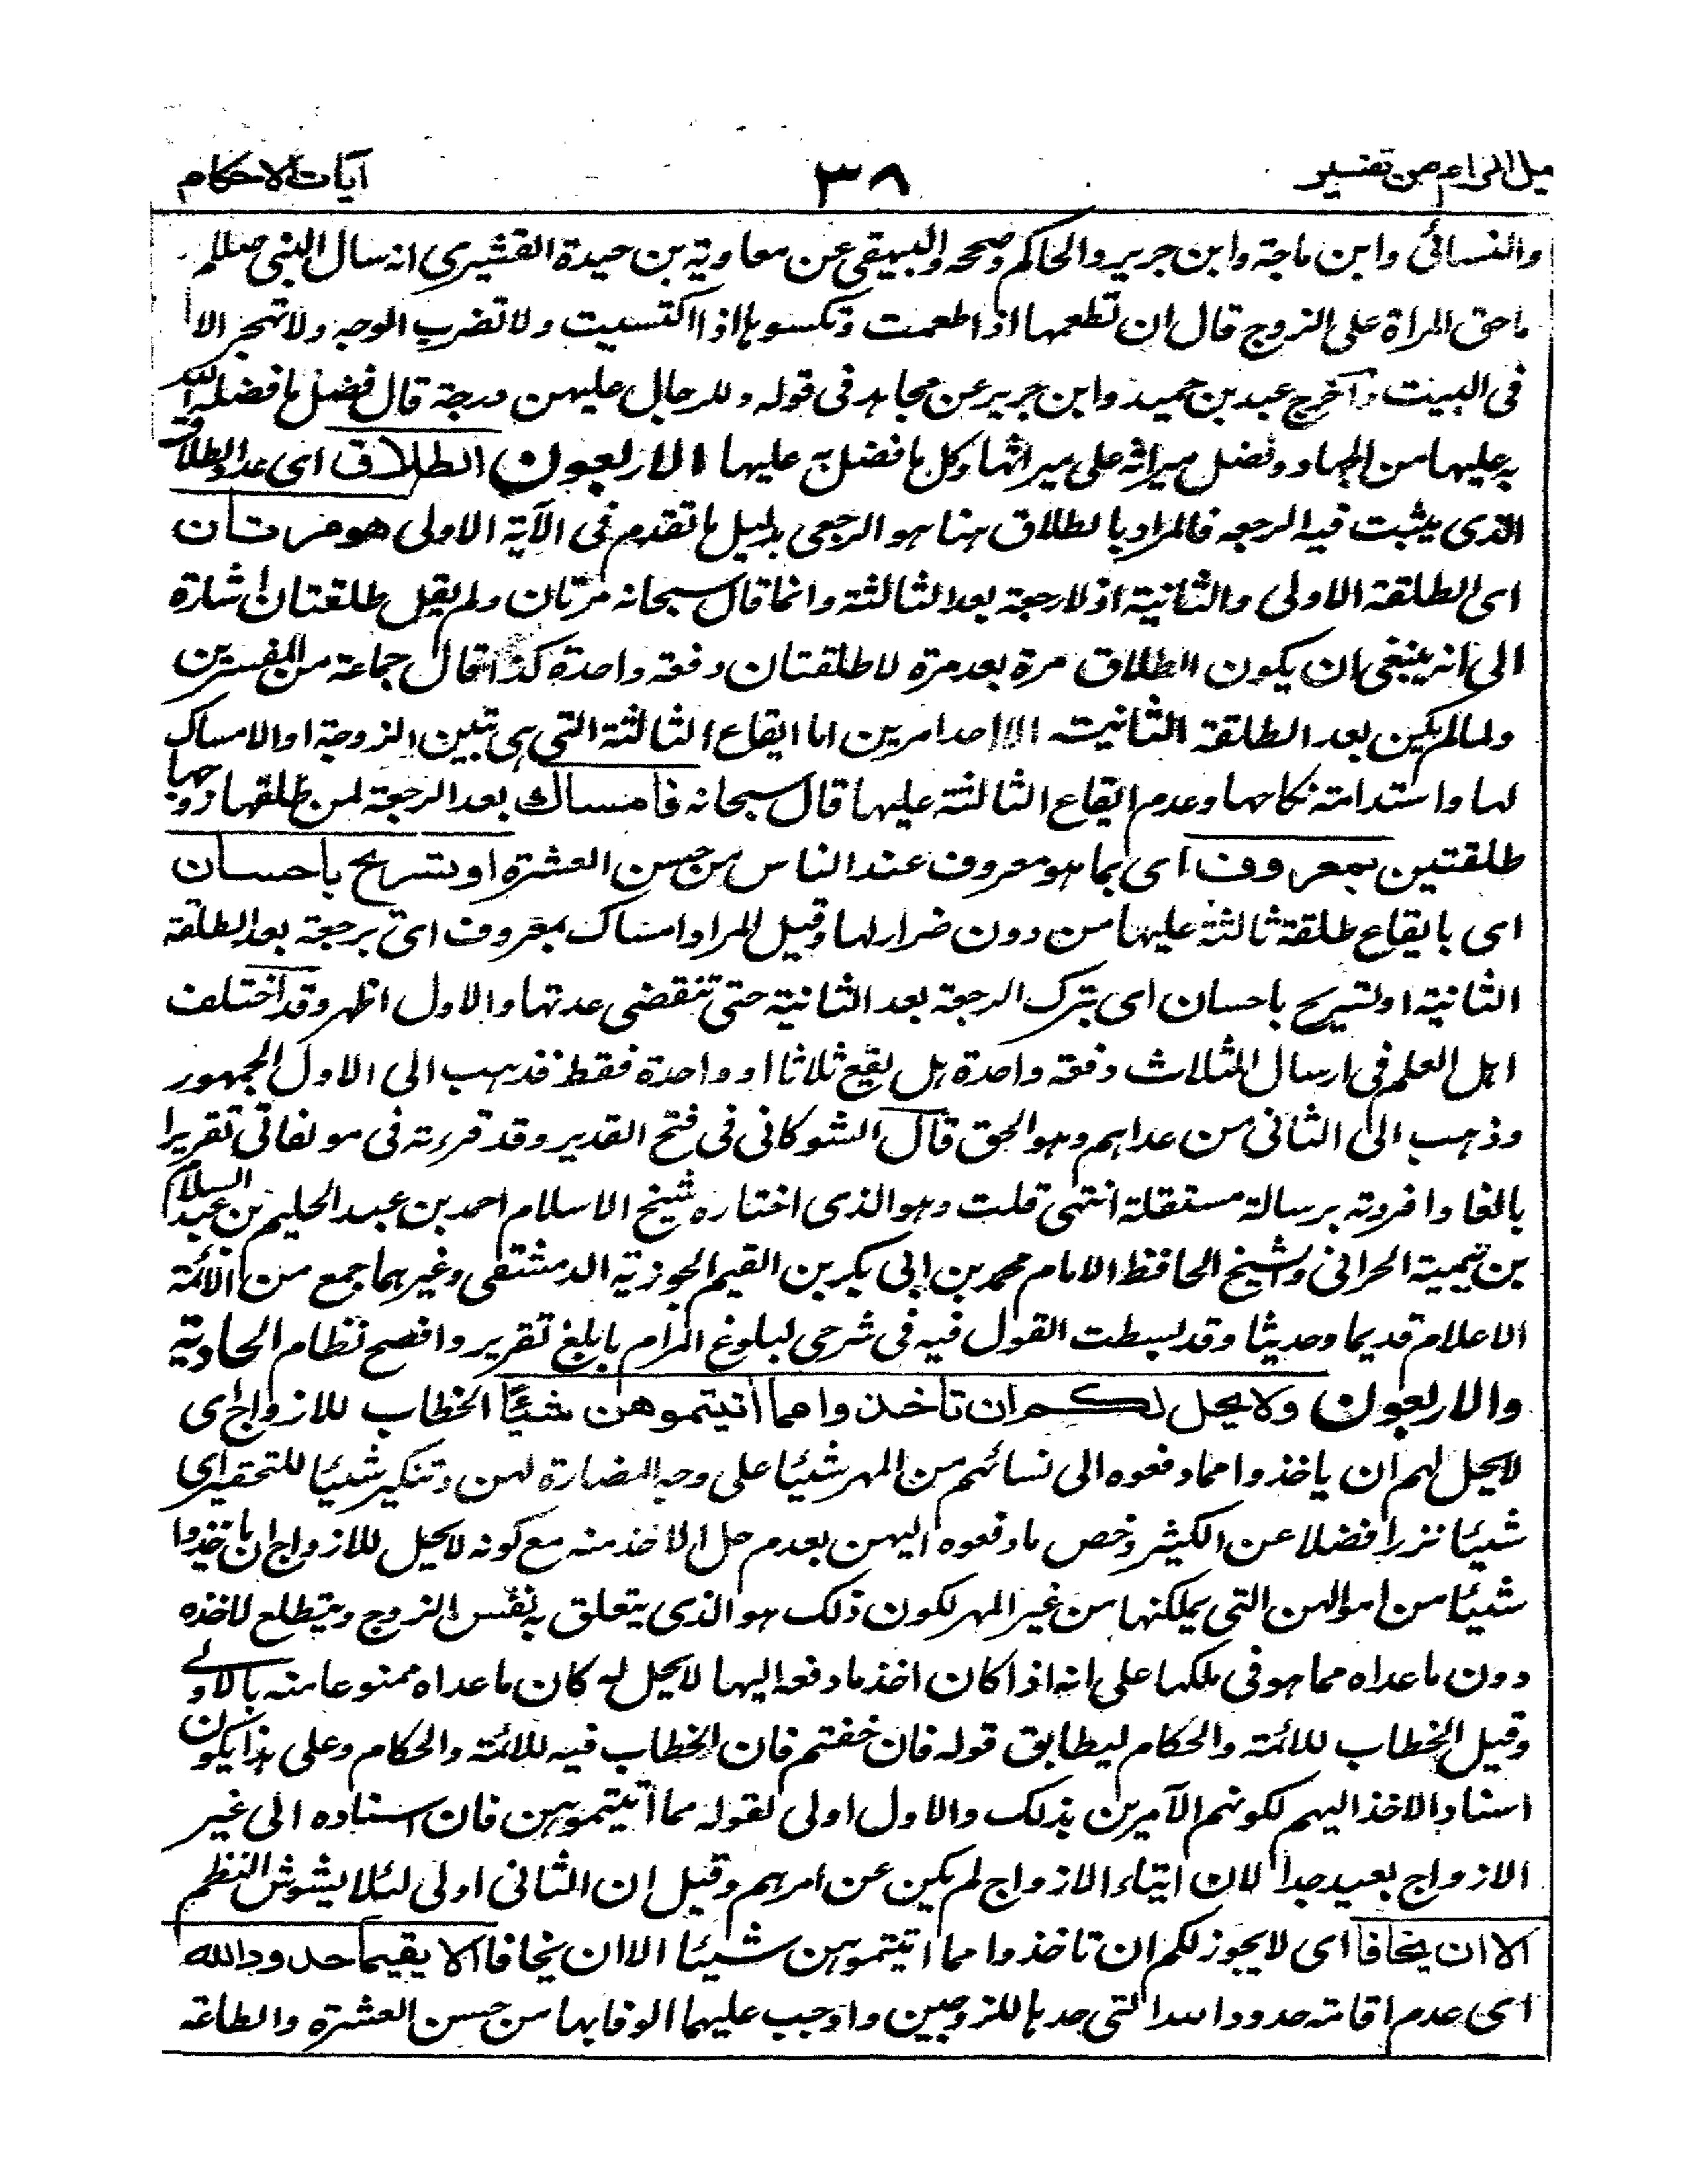 نيل المرام من تفسير ٣٨ آيات الاحكام
والنسائى وابن ماجة وابن جرير والحاكم وصححه والبيهقى عن معاوية بن حيدة القشيرى انه سال النبى صللم
ما حق المراة على الزوج قال ان تطعمها اذا طعمت وتكسوها اذا اكتسيت ولا تضرب الوجه ولا تهجر الا
فى البيت واخرج عبد بن حميد وابن جرير عن مجاهد فى قوله وللرجال عليهن درجة قال فضل ما فضله الله
به عليها من الجهاد وفضل ميراثه على ميراثها وكل ما فضل به عليها الاربعون الطلاق اى عدد الطلاق
الذى يثبت فيه الرجعه فالمراد بالطلاق هنا هو الرجعى بدليل ما تقدم فى الآية الاولى هو مرتان
اى الطلقة الاولى والثانية اذ لا رجعة بعد الثالثة وانما قال سبحانه مرتان ولم يقل طلقتان اشارة
الى انه ينبغى ان يكون الطلاق مرة بعد مرة لا طلقتان دفعه واحدة كذا قال جماعة من المفسرين
ولما لم يكن بعد الطلقة الثانية الا احد امرين اما ايقاع الثالثة التى هى تبين الزوجة او الامساك
لها واستدامة نكاحها وعدم ايقاع الثالثة عليها قال سبحانه فامساك بعد الرجعة لمن طلقها زوجها
طلقتين بمعروف اى بما هو معروف عند الناس من حسن العشرة او تسريح باحسان
اى بايقاع طلقة ثالثة عليها من دون ضرار لها وقيل المراد امساك بمعروف اى برجعة بعد الطلقة
الثانية او تسريح باحسان اى بترك الرجعة بعد الثانية حتى تنقضى عدتها والاول اظهر وقد اختلف
اهل العلم فى ارسال الثلاث دفعه واحدة هل يقع ثلاثا او واحدة فقط فذهب الى الاول الجمهور
وذهب الى الثانى من عداهم وهو الحق قال الشوكانى فى فتح القدير وقد قررته فى مولفاتى تقريرا
بالغا وافردته برسالة مستقلة انتهى قلت وهو الذى اختاره شيخ الاسلام احمد بن عبد الحليم بن عبد السلام
بن تيمية الحرانى والشيخ الحافظ الامام محمد بن ابى بكر بن القيم الجوزية الدمشقى وغيرهما جمع من الائمة
الاعلام قديما وحديثا وقد بسطت القول فيه فى شرحى لبلوغ المرام بابلغ تقرير وافصح نظام الحادية
والاربعون ولا يحل لكم ان تاخذوا مما اتيتموهن شيئا الخطاب للازواج اى
لا يحل لهم ان ياخذوا مما دفعوه الى نسائهم من المهر شيئا على وجه المضارة لهن وتنكير شيئا للتحقير اى
شيئا نزرا فضلا عن الكثير وخص ما دفعوه اليهن بعدم حل الاخذ منه مع كونه لا يحل للازواج ان ياخذوا
شيئا من اموالهن التى يملكنها من غير المهر لكون ذلك هو الذى يتعلق به نفس الزوج ويتطلع لاخذه
دون ما عداه مما هو فى ملكها على انه اذا كان اخذ ما دفعه اليها لا يحل له كان ما عداه ممنوعا منه بالاولے
وقيل الخطاب للائمة والحكام ليطابق قوله فان خفتم فان الخطاب فيه للائمة والحكام وعلى هذا يكون
اسناد الاخذ اليهم لكونهم الآمرين بذلك والاول اولى لقوله مما اتيتموهن فان اسناده الى غير
الازواج بعيد جدا لان ايتاء الازواج لم يكن عن امرهم وقيل ان الثانى اولى لئلا يشوش النظم
الا ان يخافا اى لا يجوز لكم ان تاخذوا مما اتيتموهن شيئا الا ان يخافا الا يقيما حدود الله
اى عدم اقامة حدود الله التى حدها للزوجين واوجب عليهما الوفا بها من حسن العشرة والطاعة